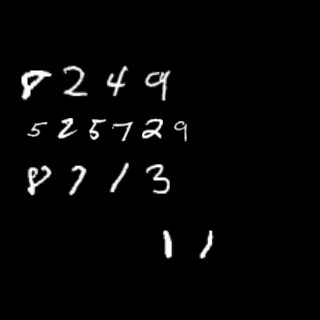 8249
525729
8713
11